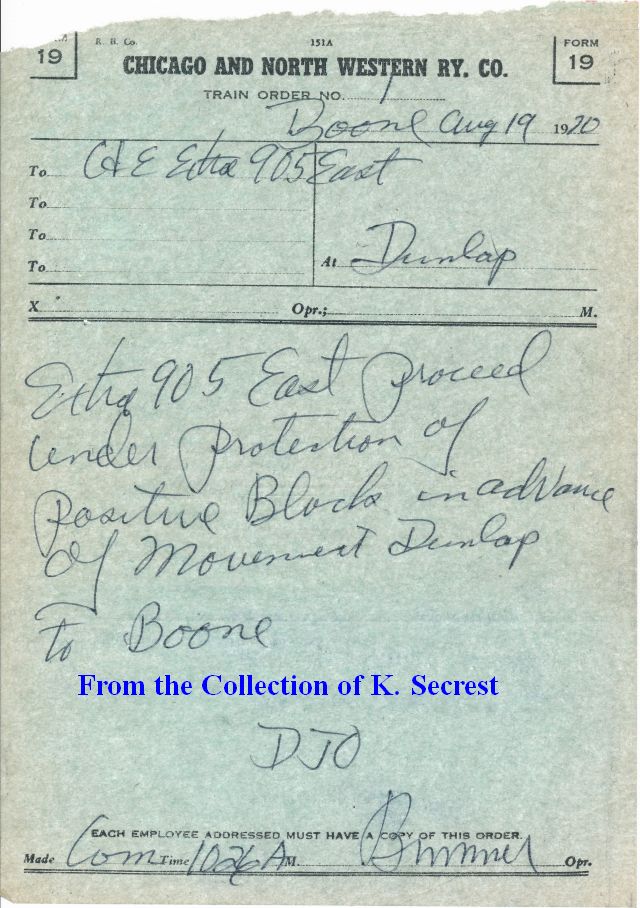 FORM
19
R. B. Co.
151A
FORM
19
CHICAGO AND NORTH WESTERN RY. CO.
TRAIN ORDER NO. 1
Boone Aug 19 1920
To C&E Extra 905 East
To
To
To
At Dunlap
X
Opr.;
M.
Extra 905 East proceed
under protection of
positive Block in advance
of movement Dunlap
To Boone
From the Collection of K. Secrest
DJO
EACH EMPLOYEE ADDRESSED MUST HAVE A COPY OF THIS ORDER.
Made Com Time 1026 A M. Opr.